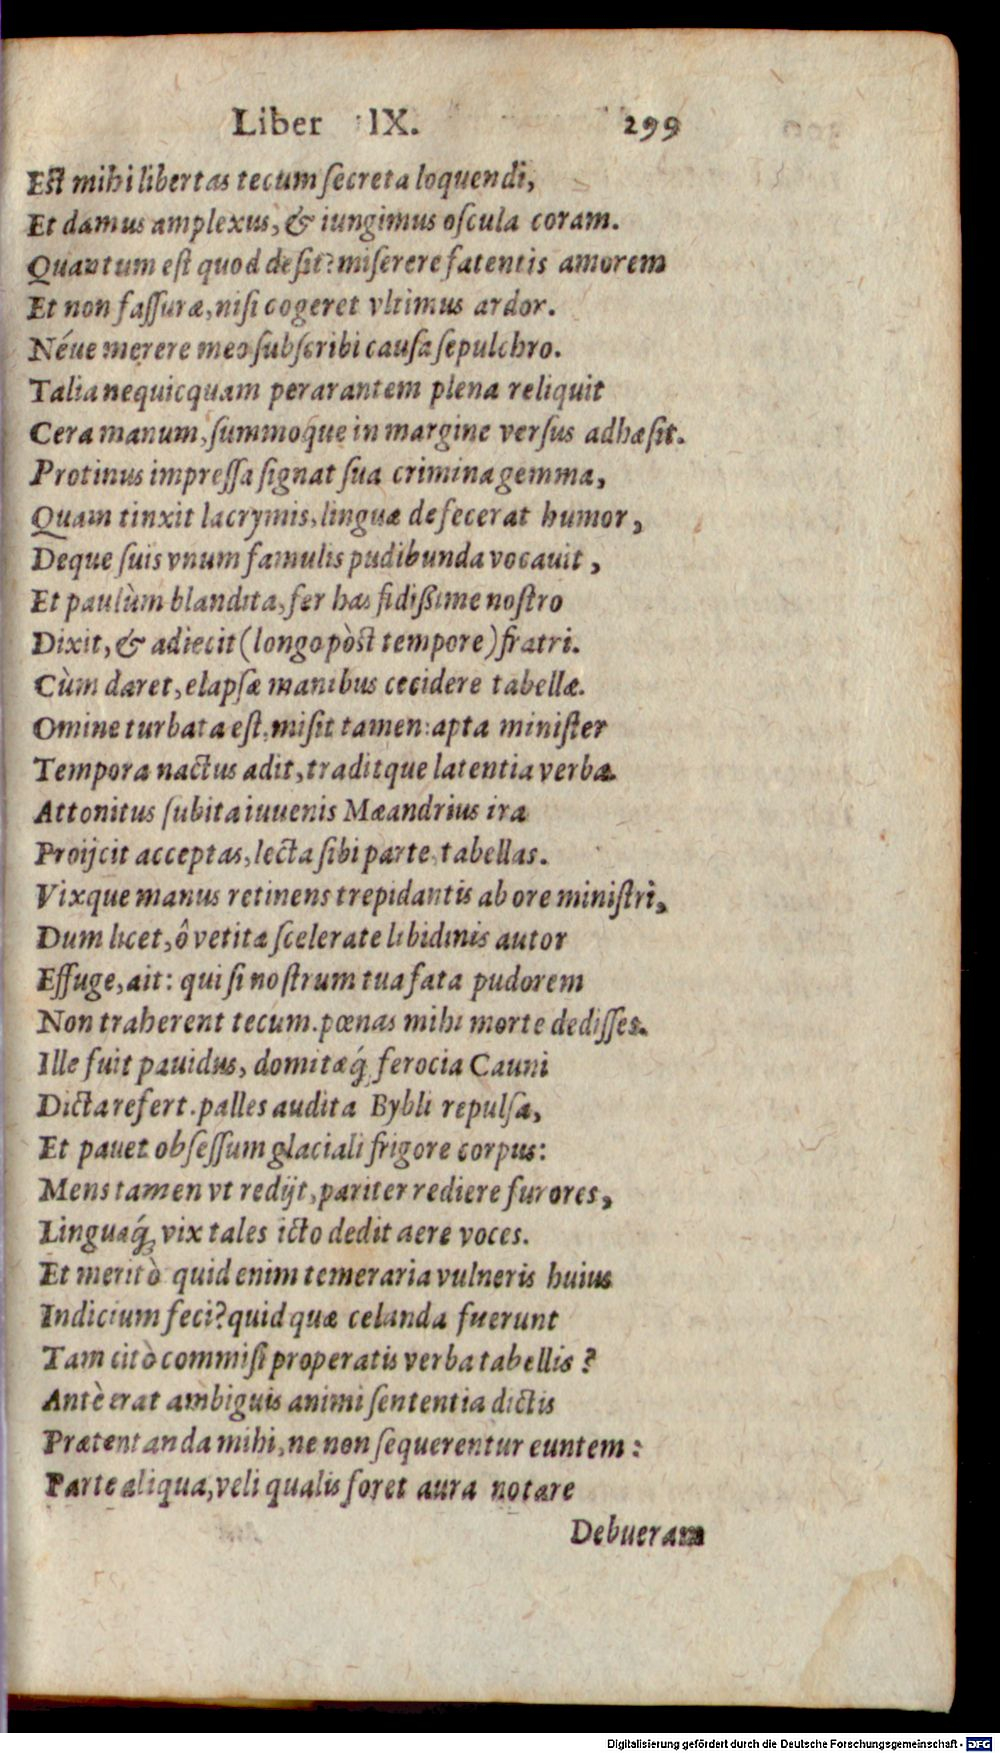 Liber IX. 299
Est mihi libertas tecum ſecreta loquendi,
Et damus amplexus, & iungimus oſcula coram.
Quantum eſt quod deſit? miſerere fatentis amorem
Et non faſſuræ, niſi cogeret vltimus ardor.
Néue merere meo ſubſcribi cauſa ſepulchro.
Talia nequicquam perarantem plena reliquit
Cera manum, ſummoque in margine verſus adhæſit.
Protinus impreſſa ſignat ſua crimina gemma,
Quam tinxit lacrymis, linguæ defecerat humor,
Deque ſuis vnum famulis pudibunda vocauit,
Et paulùm blandita, fer has fidißime noſtro
Dixit, & adiecit (longo pòst tempore) fratri.
Cùm daret, elapſæ manibus cecidere tabellæ.
Omine turbata eſt, miſit tamen: apta miniſter
Tempora nactus adit, traditque latentia verba.
Attonitus ſubita iuuenis Mæandrius ira
Proijcit acceptas, lecta ſibi parte, tabellas.
Vixque manus retinens trepidantis ab ore miniſtri,
Dum licet, ô vetitæ ſcelerate libidinis autor
Effuge, ait: qui ſi noſtrum tua fata pudorem
Non traherent tecum. pœnas mihi morte dediſſes.
Ille fuit pauidus, domitæq́; ferocia Cauni
Dicta refert. palles audita Bybli repulſa,
Et pauet obſeſſum glaciali frigore corpus:
Mens tamen vt redijt, pariter rediere furores,
Linguaq́; vix tales icto dedit aere voces.
Et meritò quid enim temeraria vulneris huius
Indicium feci? quid quæ celanda fuerunt
Tam citò commiſi properatis verba tabellis?
Antè erat ambiguis animi ſententia dictis
Prætentanda mihi, ne non ſequerentur euntem:
Parte aliqua, veli qualis foret aura notare
Debueram
Digitalisierung gefördert durch die Deutsche Forschungsgemeinschaft - DFG